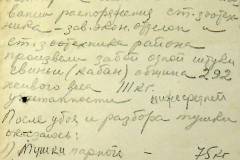 вании распоряжения ст. зоотех-
ника - зав. экон. отделом и
ст. зоотехника района
произвели забой одной штуки
свиньи (кабан) община 292
живого веса 111 кг.
упитанности нижесредней
После убоя и разбора тушки
оказалось:
1) Тушки парного - 75 кг